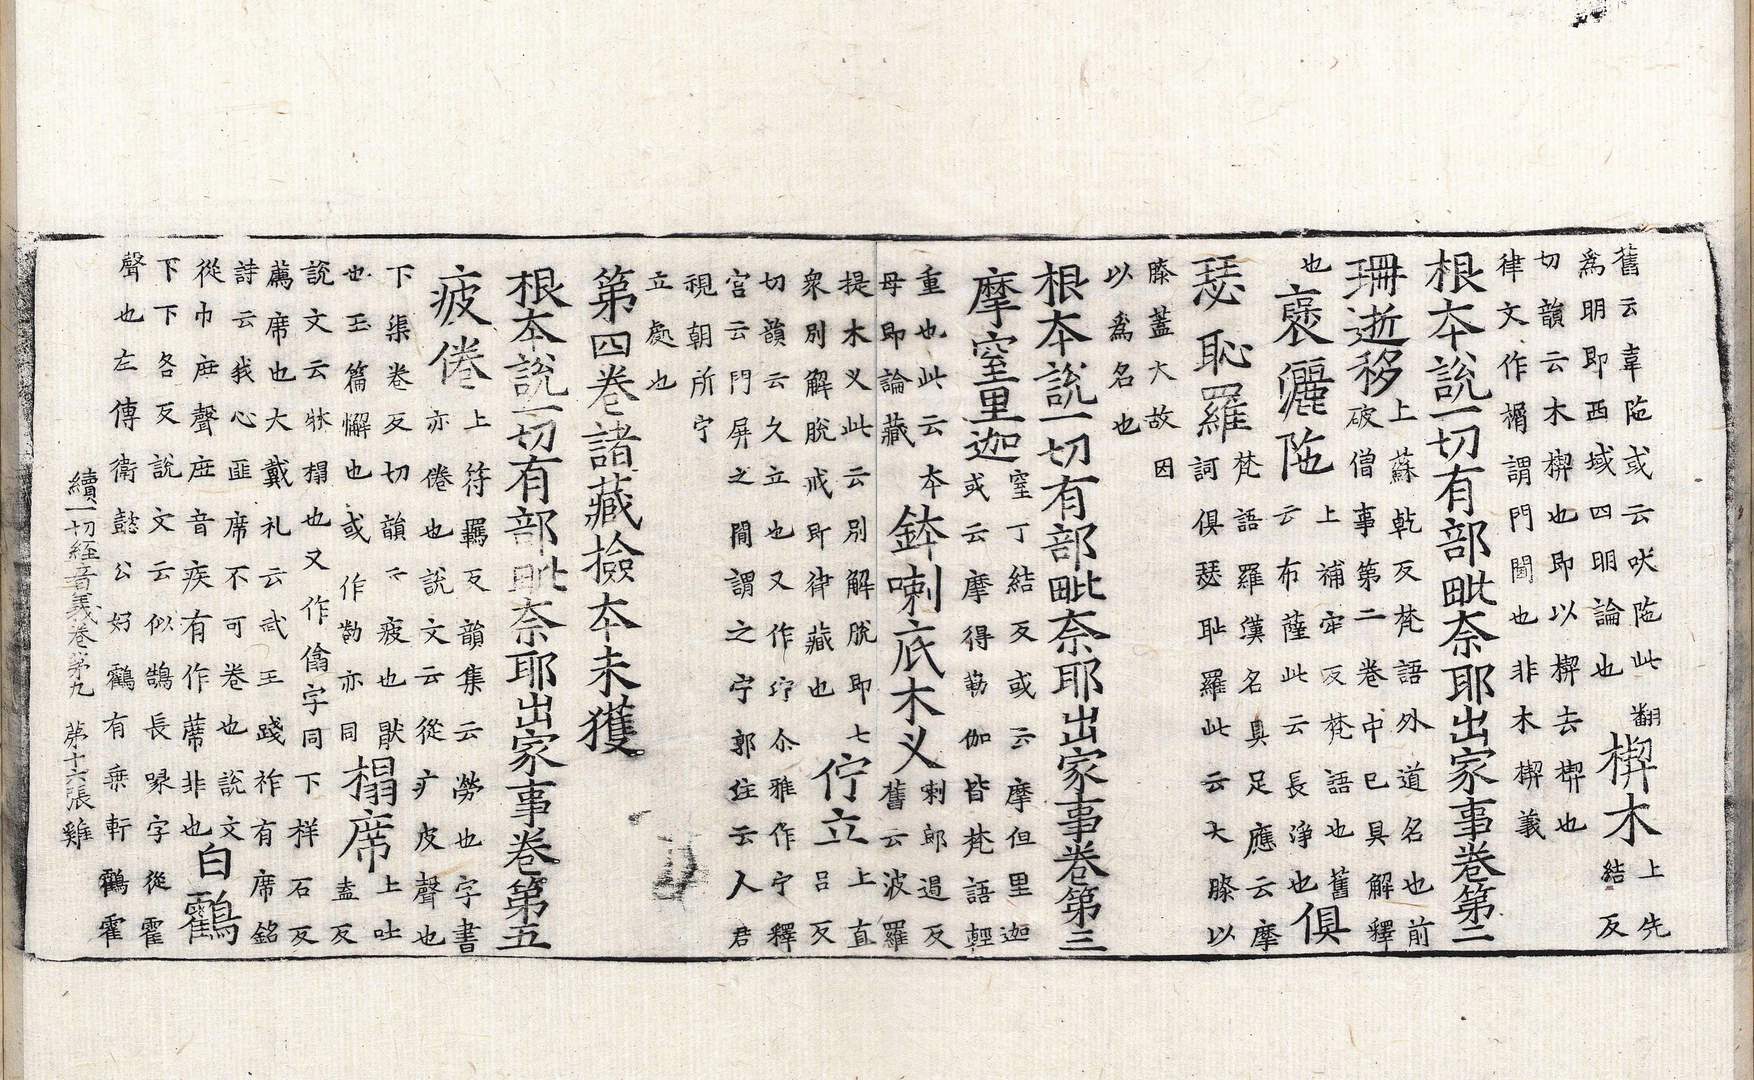 舊云韋陁或云吠陁此翻
為明即西域四明論也
楔木
上先
結反
切韻云木楔也即以楔去楔也
律文作楣謂門閫也非木楔義
根本說一切有部毗奈耶出家事卷第二
珊逝移
上蘇乾反梵語外道名也前
破僧事第二卷中已具解釋
也
褒灑陁
上補牢反梵語也舊
云布薩此云長淨也
俱
瑟恥羅
梵語羅漢名具足應云摩
訶俱瑟耻羅此云大膝以
膝蓋大故因
以為名也
根本說一切有部毗奈耶出家事卷第三
摩窒里迦
窒丁結反或云摩但里迦
或云摩得勒伽皆梵語輕
重也此云本
母即論藏
鉢喇底木叉
喇郎遏反
舊云波羅
提木叉此云別解脫即七
衆別解脫戒即律藏也
佇立
上直
呂反
切韻云久立也又作竚尒雅作宁釋
宮云門屏之間謂之宁郭住云人君
視朝所宁
立處也
第四卷諸藏撿本未獲
根本說一切有部毗奈耶出家事卷第五
疲倦
上符羈反韻集云勞也字書
亦倦也說文云從疒皮聲也
下渠卷反切韻云疲也猒
也玉篇懈也或作勌亦同
榻席
上吐
盍反
說文云牀榻也又作傝字同下祥石反
薦席也大戴礼云武王踐祚有席銘
詩云我心匪席不可卷也說文
從巾庶聲庶音疾有作蓆非也
白鸖
下下各反說文云似鵠長喙字從霍
聲也左傳衛懿公好鸖有乗軒鸖霍
續一切經音義卷第九 第十六張 雞